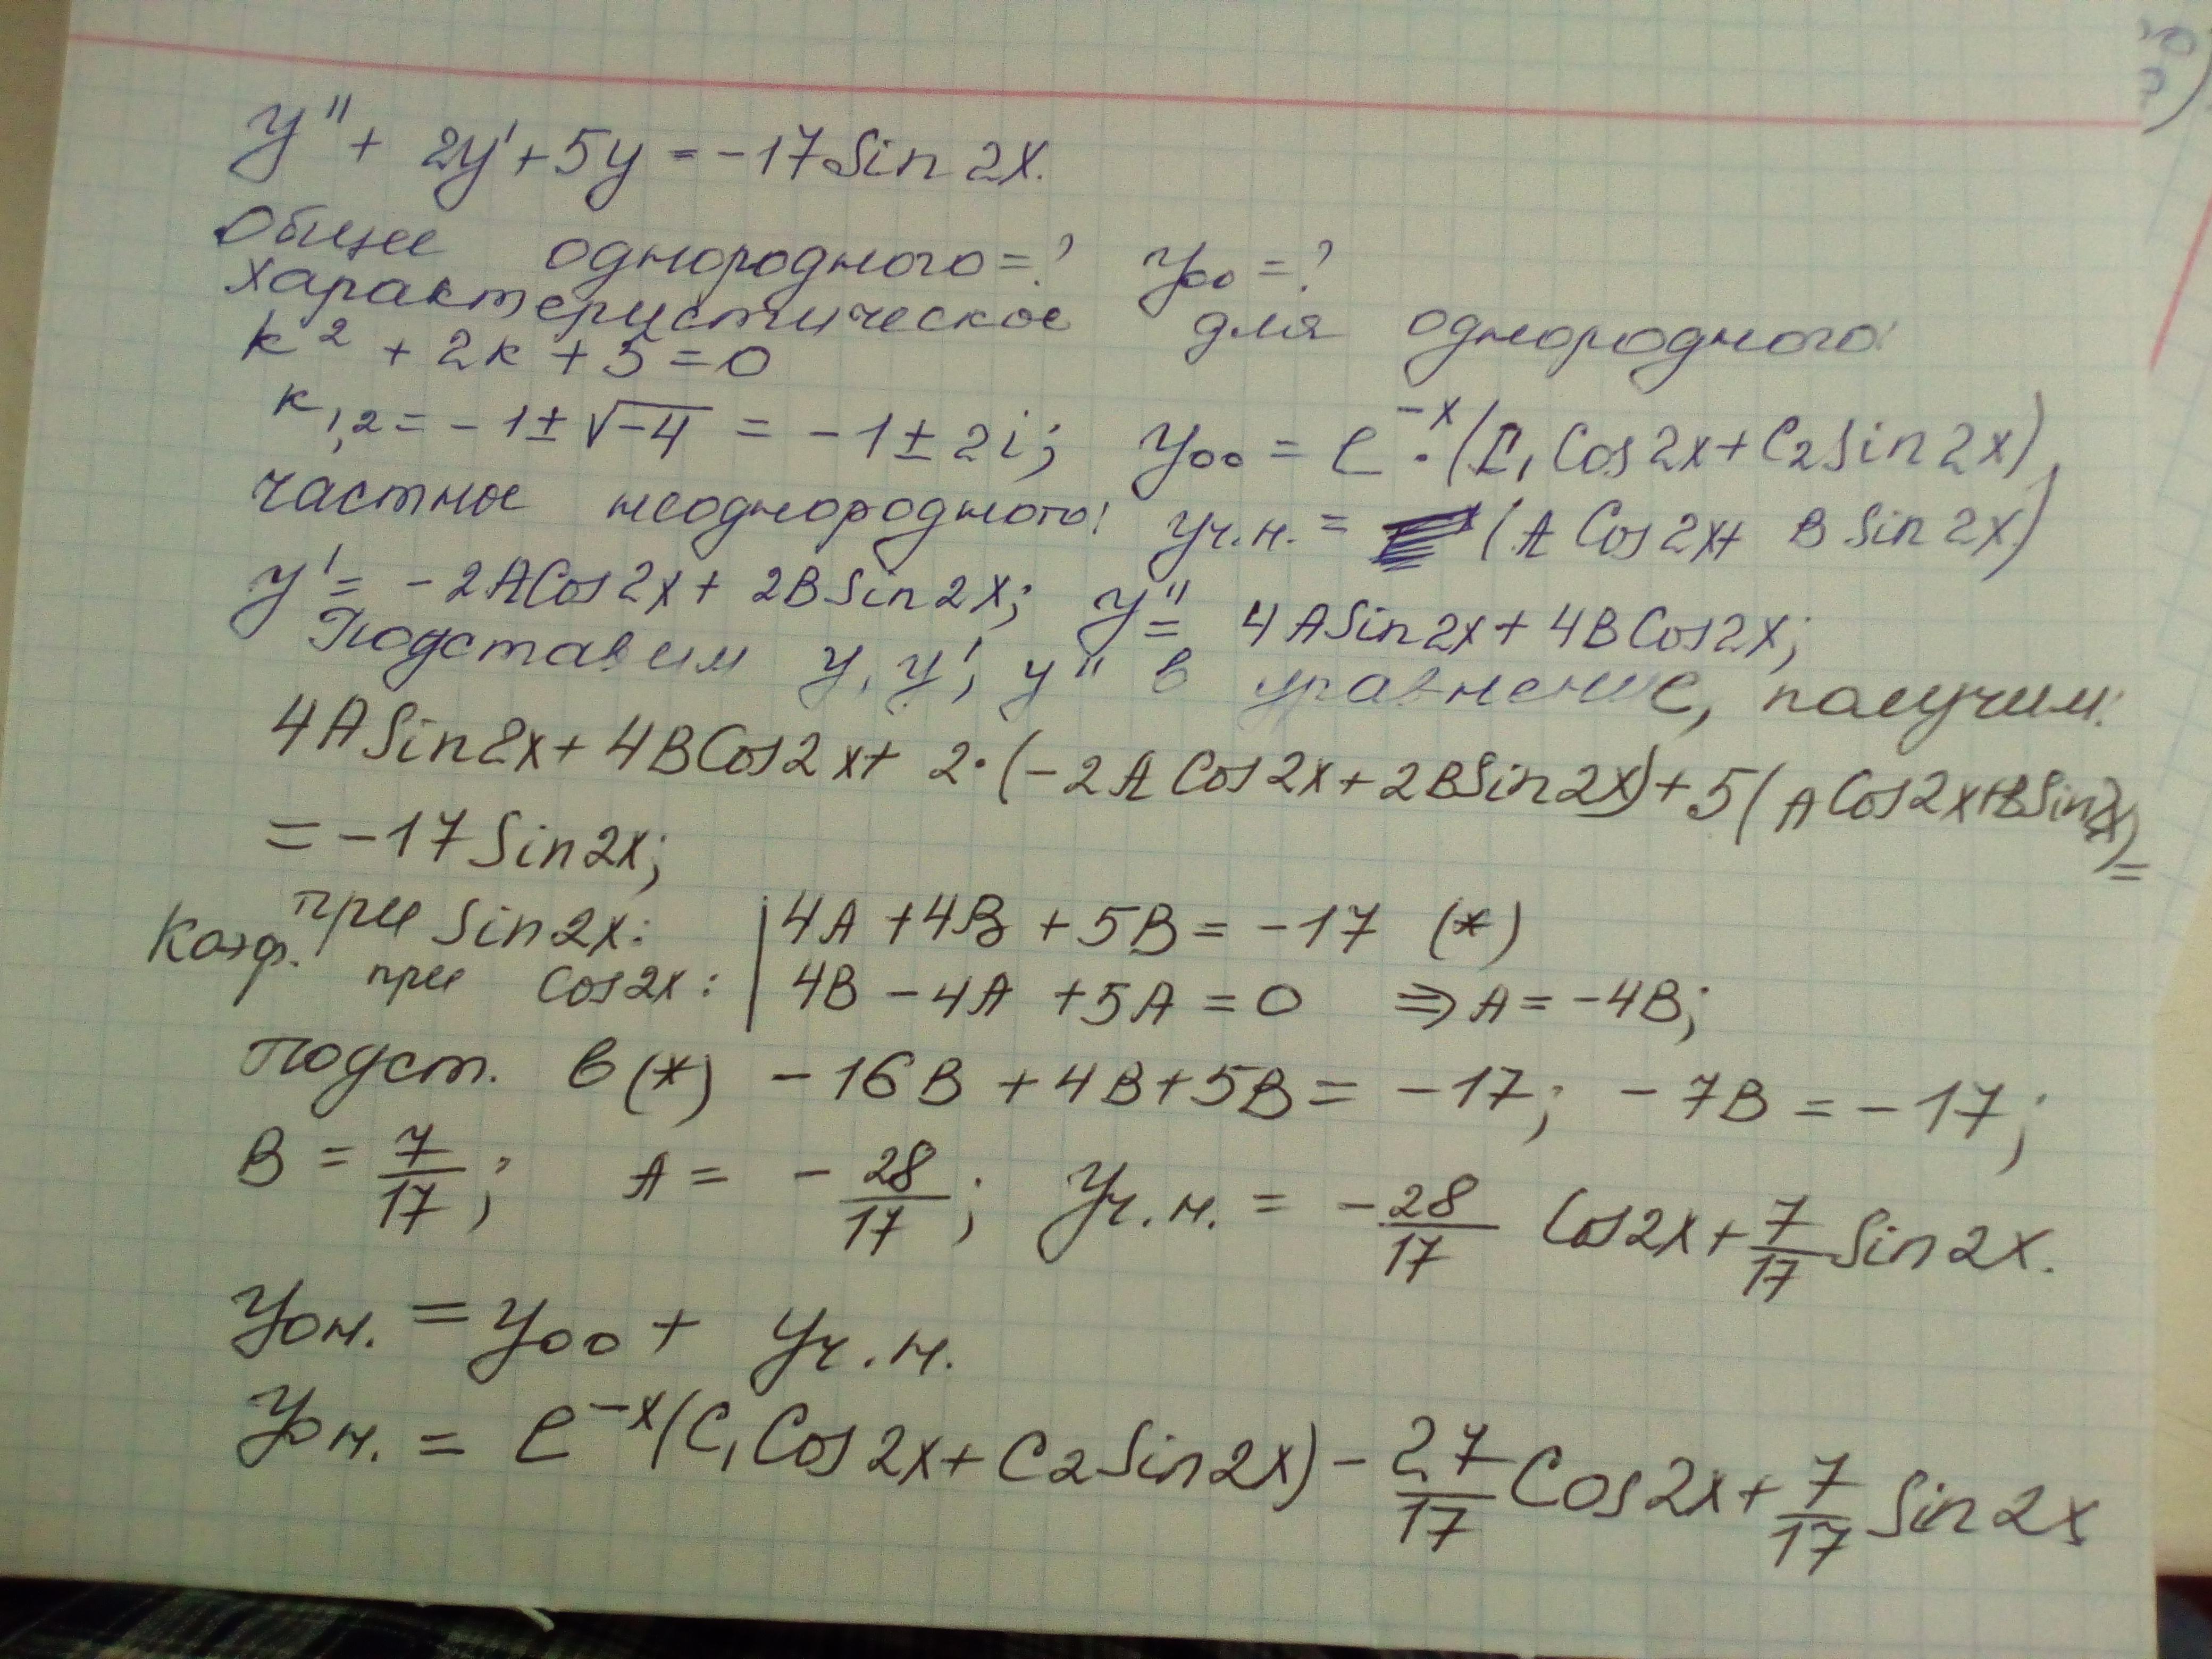 y'' + 2y' + 5y = -17 Sin 2x.
Общее однородного = ? yоо = ?
характеристическое для однородного:
k² + 2k + 5 = 0
k₁,₂ = -1 ± √-4 = -1 ± 2i; yоо = e⁻ˣ · (C₁ Cos 2x + C₂ Sin 2x),
частное неоднородного: yч.н. = (A Cos 2x + B Sin 2x)
y' = -2A Cos 2x + 2B Sin 2x; y'' = 4A Sin 2x + 4B Cos 2x;
Подставим y, y', y'' в уравнение, получим:
4A Sin 2x + 4B Cos 2x + 2·(-2A Cos 2x + 2B Sin 2x) + 5(A Cos 2x + B Sin 2x) =
= -17 Sin 2x;
Коэф. при Sin 2x: | 4A + 4B + 5B = -17 (*)
при Cos 2x: | 4B - 4A + 5A = 0 ⇒ A = -4B;
подст. в (*) -16B + 4B + 5B = -17; -7B = -17;
B = 7/17; A = -28/17; Yч.н. = -28/17 Cos 2x + 7/17 Sin 2x.
Yон. = yоо + yч.н.
Yон. = e⁻ˣ(C₁ Cos 2x + C₂ Sin 2x) - 27/17 Cos 2x + 7/17 Sin 2x